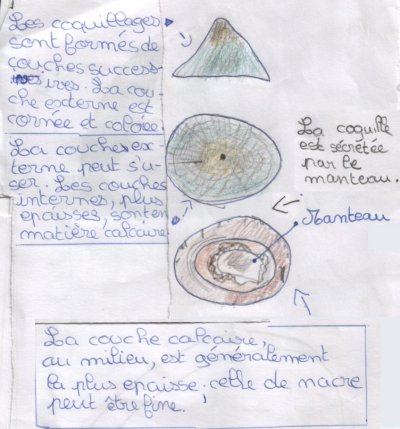 Les coquillages
sont formés de
couches success-
ives. La cou-
che externe est
cornée et colorée.
La couches ex
terme peut s'u-
ser. Les couches
internes, plus
epaisses, sont en
matière calcaire
La coquille
est sécrétée
par le
manteau.
Manteau
La couche calcaire,
au milieu, est généralement
la plus epaisse. celle de nacre
peut être fine.